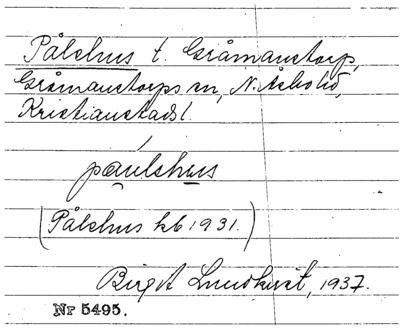 Pålshus t. Gråmanstorp,
Gråmanstorps sn, N. Åsbo hd,
Kristianstads l.
páulshus
(Pålshus kb 1931.)
Birgit Lundkvist, 1937.
Nr 5495.